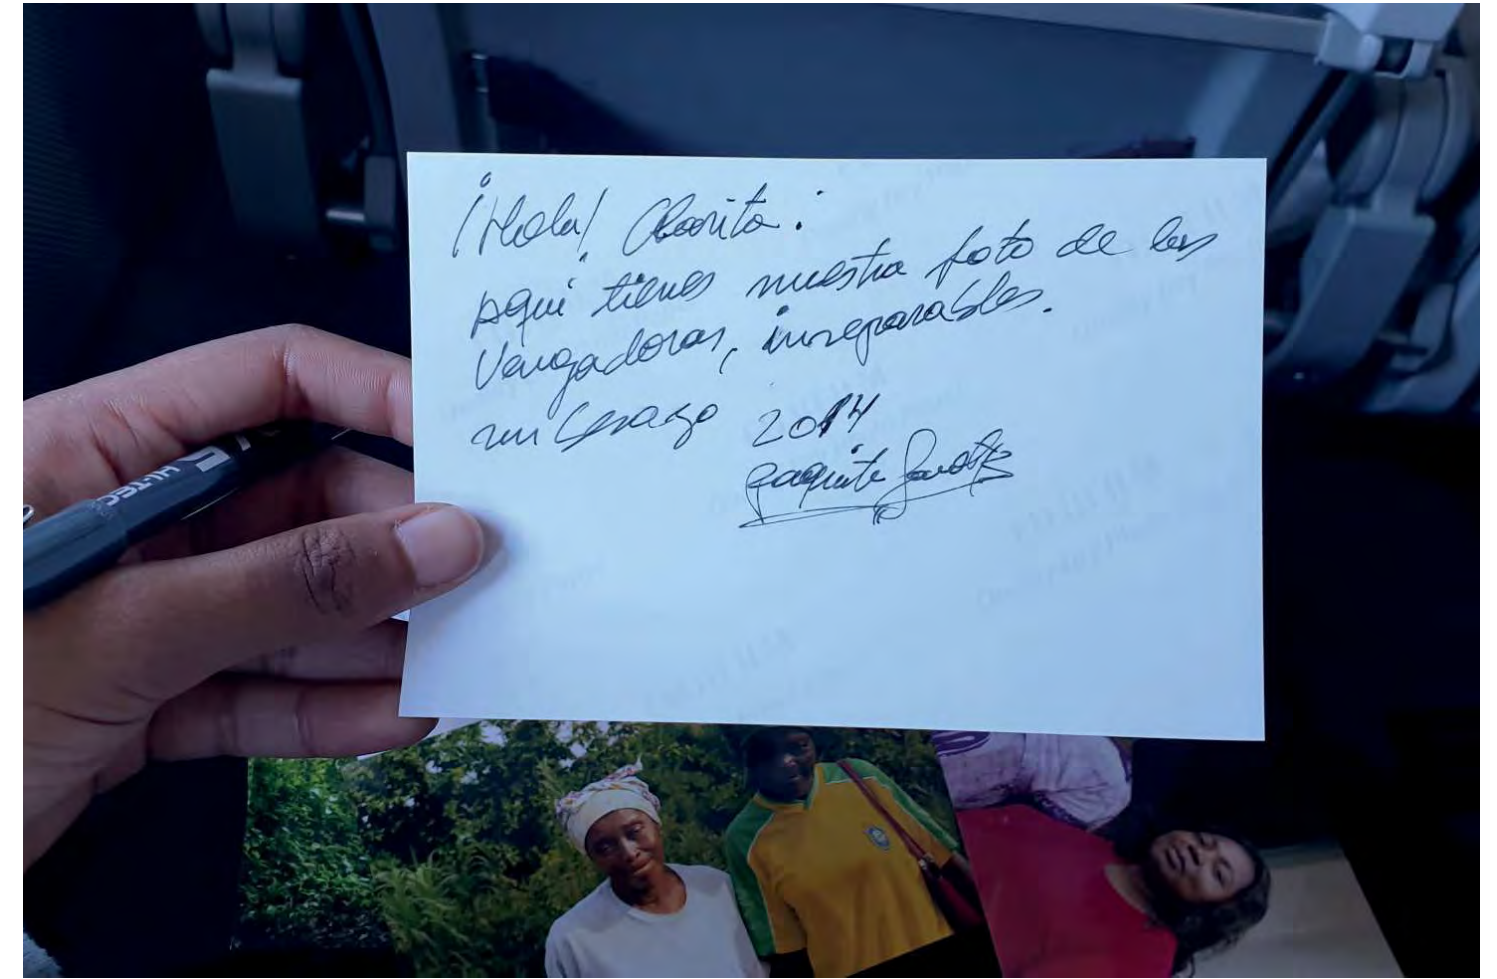 ¡Hola! Clarita:
Aquí tienes nuestra foto de las
Vengadoras, inseparables.
un abrazo 2014
HI-TEC